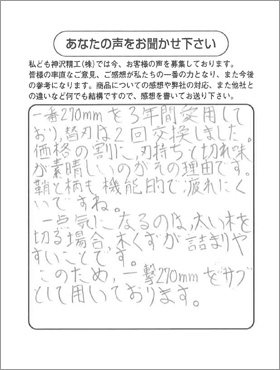 あなたの声をお聞かせ下さい
私ども神沢精工(株)では今、お客様の声を募集しております。
皆様の率直なご意見、ご感想が私たちの一番の力となり、また今後
の参考になります。商品についての感想や弊社の対応、また他社と
の違いなど何でも結構ですので、感想を書いてお送り下さい。
一番270mmを3年間愛用して
おり、替刃は2回交換しました。
価格の割に、刃持ちと切れ味
が素晴しいのがその理由です。
鞘と柄も機能的で疲れにく
いですね。
一番気になるのは、太い木を
切る場合、木くずが詰まりや
すいことです。
このため、一撃270mmをサブ
として用いております。